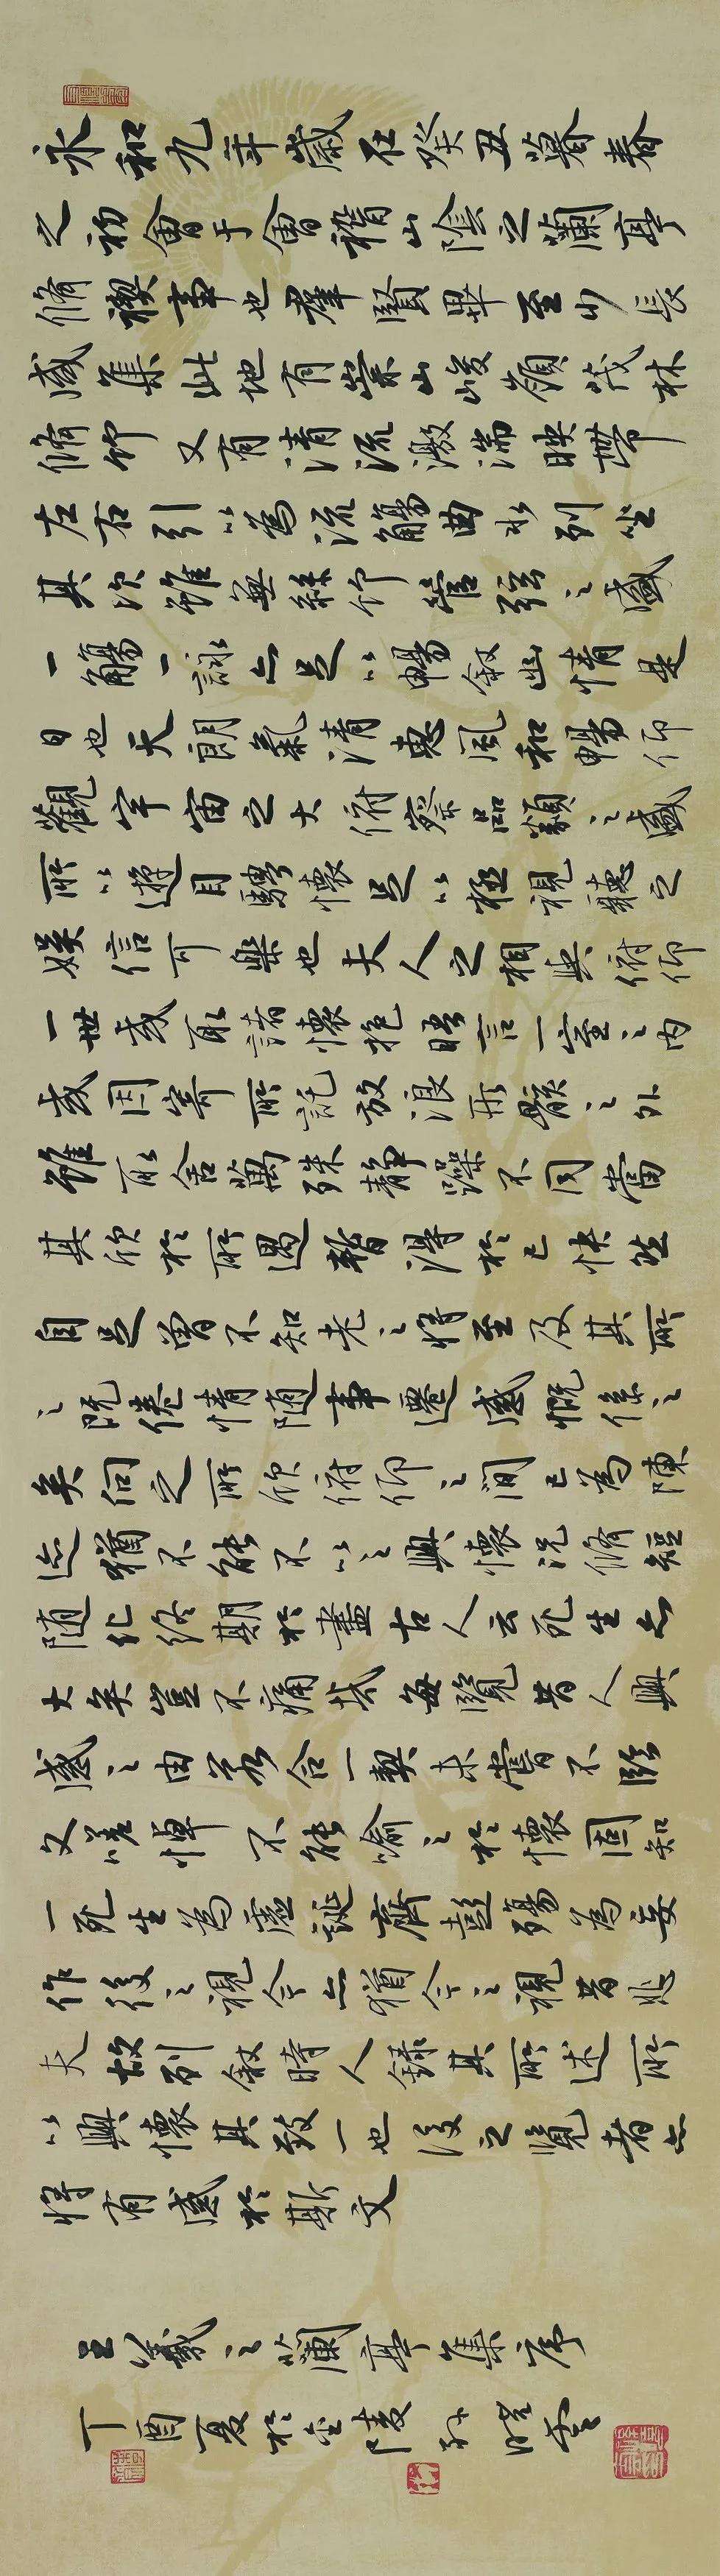 永和九年歲在癸丑暮春
之初會于會稽山陰之蘭亭
脩禊事也群賢畢至少長
咸集此地有崇山峻嶺茂林
脩竹又有清流激湍映帶
左右引以為流觴曲水列坐
其次雖無絲竹管弦之盛
一觴一詠亦足以暢敘幽情是
日也天朗氣清惠風和暢仰
觀宇宙之大俯察品類之盛
所以遊目騁懷足以極視聽之
娛信可樂也夫人之相與俯仰
一世或取諸懷抱晤言一室之內
或因寄所託放浪形骸之外
雖取舍萬殊靜躁不同當
其欣於所遇暫得於己快然
自足曾不知老之將至及其所
之既倦情隨事遷感慨係之
矣向之所欣俯仰之間已為陳
迹猶不能不以之興懷況脩短
隨化終期於盡古人云死生亦
大矣豈不痛哉每覽昔人興
感之由若合一契未嘗不臨
文嗟悼不能喻之於懷固知
一死生為虛誕齊彭殤為妄
作後之視今亦猶今之視昔悲
夫故列敘時人錄其所述所
以興懷其致一也後之覽者亦
將有感於斯文
王羲之蘭亭集序
丁酉夏於金陵孫曉雲